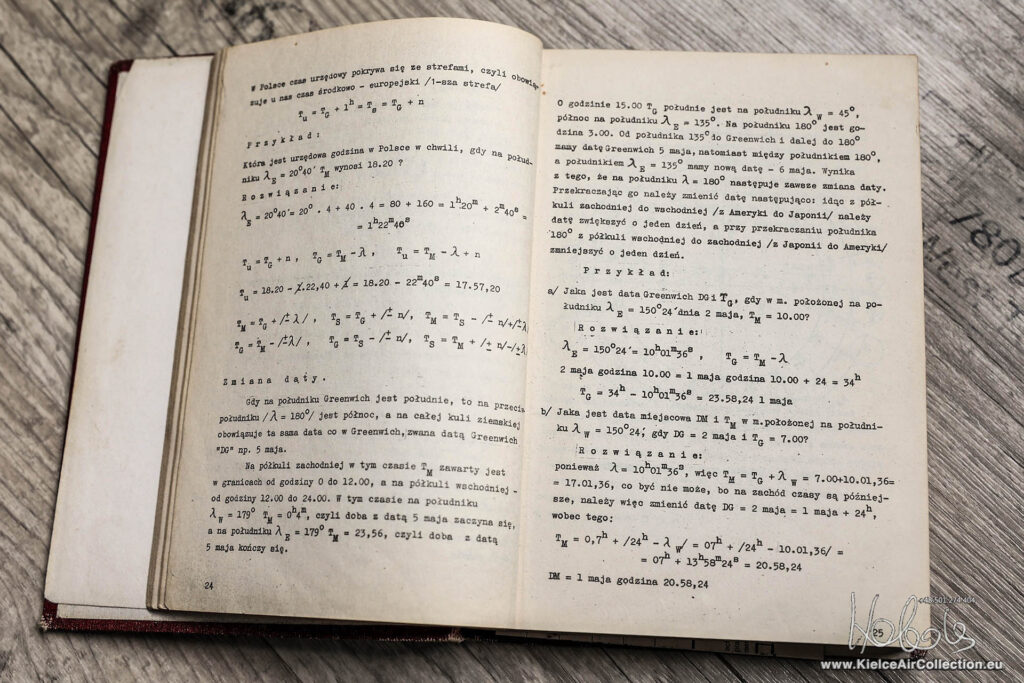 W Polsce czas urzędowy pokrywa się ze strefami, czyli obowią-
zuje u nas czas środkowo - europejski /1-sza strefa/
T_u = T_G + 1^h = T_S = T_G + n
P r z y k ł a d :
Która jest urzędowa godzina w Polsce w chwili, gdy na połud-
niku λ_E = 20°40′ T_M wynosi 18.20 ?
R o z w i ą z a n i e:
λ_E = 20°40′= 20° . 4 + 40 . 4 = 80 + 160 = 1^h20^m + 2^m40^s =
= 1^h22^m40^s
T_u = T_G + n , T_G = T_M - λ , T_u = T_M - λ + n
T_u = 18.20 - 1.22,40 + 1 = 18.20 - 22^m40^s = 17.57,20
T_M = T_G + /±λ/ , T_S = T_G + /± n/, T_M = T_S - /± n/+/±λ/
T_G = T_M - /±λ/ , T_G = T_S - /± n/, T_S = T_M + /± n/-/±λ/
Z m i a n a d a t y .
Gdy na południku Greenwich jest południe, to na przeciw
południku /λ = 180°/ jest północ, a na całej kuli ziemskiej
obowiązuje ta sama data co w Greenwich, zwana datą Greenwich
"DG" np. 5 maja.
Na półkuli zachodniej w tym czasie T_M zawarty jest
w granicach od godziny 0 do 12.00, a na półkuli wschodniej -
od godziny 12.00 do 24.00. W tym czasie na południku
λ_W = 179° T_M = 0^h4^m, czyli doba z datą 5 maja zaczyna się,
a na południku λ_E = 179° T_M = 23,56, czyli doba z datą
5 maja kończy się.
24
O godzinie 15.00 T_G południe jest na południku λ_W = 45°,
północ na południku λ_E = 135°. Na południku 180° jest go-
dzina 3.00. Od południka 135° do Greenwich i dalej do 180°
mamy datę Greenwich 5 maja, natomiast między południkiem 180°,
a południkiem λ_E = 135° mamy nową datę - 6 maja. Wynika
z tego, że na południku λ = 180° następuje zawsze zmiana daty.
Przekraczając go należy zmienić datę następująco: idąc z pół-
kuli zachodniej do wschodniej /z Ameryki do Japonii/ należy
datę zwiększyć o jeden dzień, a przy przekraczaniu południka
180° z półkuli wschodniej do zachodniej /z Japonii do Ameryki/
zmniejszyć o jeden dzień.
P r z y k ł a d:
a/ Jaka jest data Greenwich DG i T_G, gdy w m. położonej na po-
łudniku λ_E = 150°24′ dnia 2 maja, T_M = 10.00?
R o z w i ą z a n i e:
λ_E = 150°24′= 10^h01^m36^s , T_G = T_M - λ
2 maja godzina 10.00 = 1 maja godzina 10.00 + 24 = 34^h
T_G = 34^h - 10^h01^m36^s = 23.58,24 1 maja
b/ Jaka jest data miejscowa DM i T_M w m.położonej na południ-
ku λ_W = 150°24′, gdy DG = 2 maja i T_G = 7.00?
R o z w i ą z a n i e:
ponieważ λ = 10^h01^m36^s, więc T_M = T_G + λ_W = 7.00+10.01,36=
= 17.01,36, co być nie może, bo na zachód czasy są później-
sze, należy więc zmienić datę DG = 2 maja = 1 maja + 24^h,
wobec tego:
T_M = 0,7^h + /24^h - λ_W/ = 07^h + /24^h - 10.01,36/ =
= 07^h + 13^h58^m24^s = 20.58,24
DM = 1 maja godzina 20.58,24
25
www.KielceAirCollection.eu